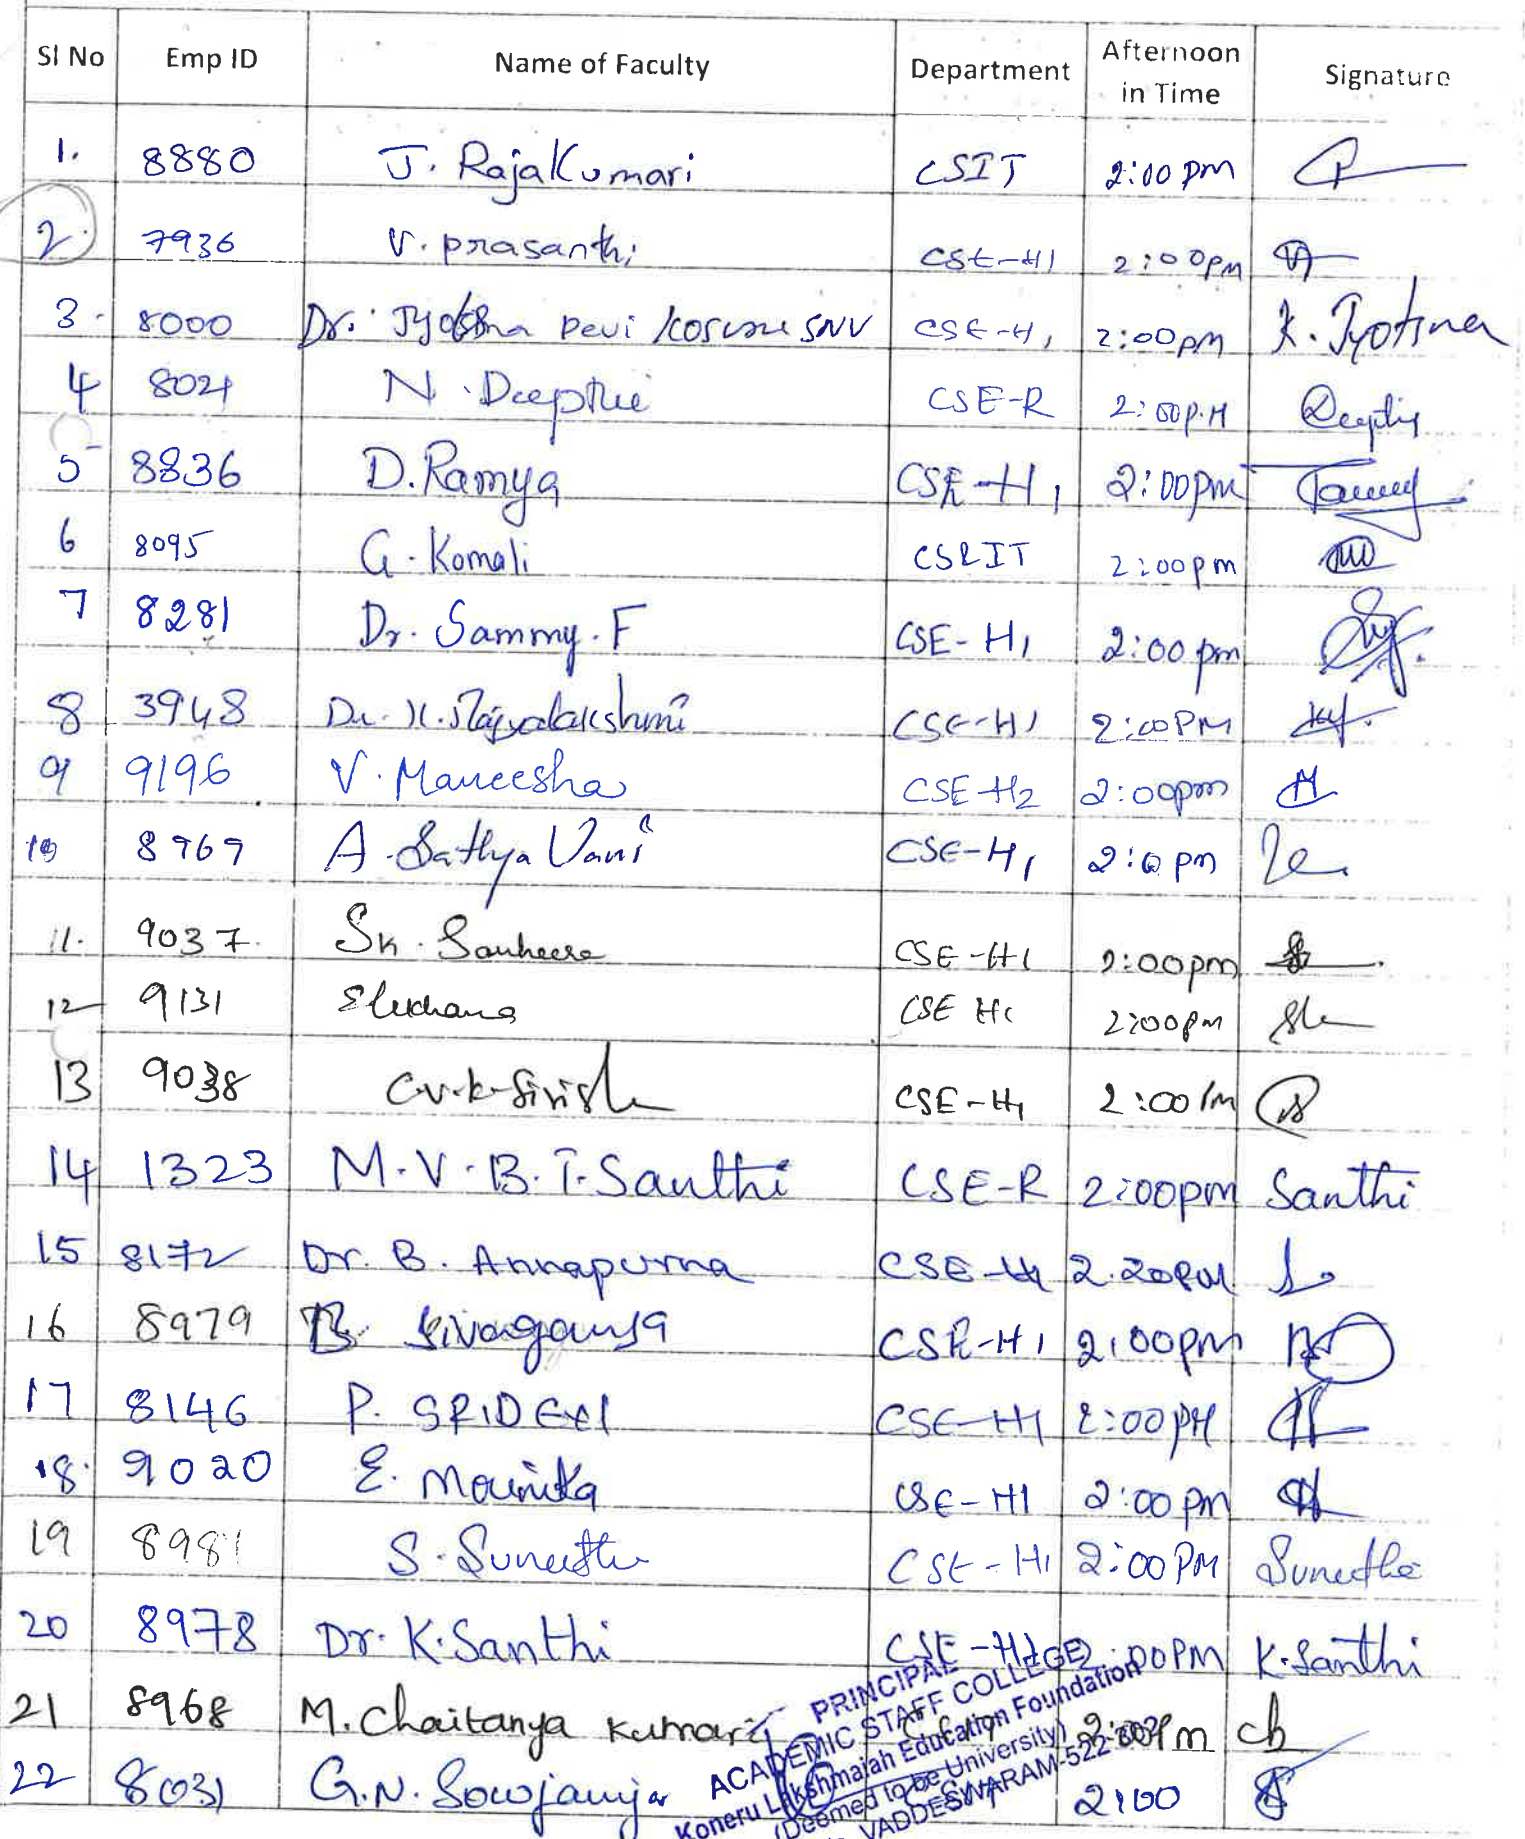 Sl No Emp ID Name of Faculty Department Afternoon in Time Signature
1. 8880 J. RajaKumari CSIT 2:00 pm
2. 7936 V. prasanthi CSE-H1 2:00pm
3. 8000 Dr. Jyotsna Devi SNV CSE-H1 2:00pm K. Jyotsna
4 8021 N. Deepthi CSE-R 2:00P.M Deepthi
5 8836 D. Ramya CSE-H1 2:00pm
6 8095 G. Komali CS&IT 2:00pm
7 8281 Dr. Sammy. F CSE-H1 2:00 pm
8 3948 Dr. K. Rajyalakshmi CSE-H1 2:00PM
9 9196 V. Maneesha CSE-H2 2:00pm
10 8969 A. Sathya Vani CSE-H1 2:0 pm
11. 9037. Sk. CSE-H1 2:00pm
12 9131 CSE H1 2:00pm
13 9038 C.V.K. Sirisha CSE-H1 2:00 Pm
14 1323 M.V.B.T. Santhi CSE-R 2:00pm Santhi
15 8172 Dr. B. Annapurna CSE-H1 2.20PM
16 8979 B. CSE-H1 2:00pm
17 8146 P. SRIDEVI CSE-H1 2:00PM
18. 9020 E. Mounika CSE-H1 2:00 pm
19 8981 S. Suneetha CSE-H1 2:00PM Suneetha
20 8978 Dr. K. Santhi CSE-H1 2:00PM K. Santhi
21 8968 M. Chaitanya Kumari 2:00Pm ch
22 8031 G.N. Sowjanya 2:00
PRINCIPAL
ACADEMIC STAFF COLLEGE
Koneru Lakshmaiah Education Foundation
(Deemed to be University)
VADDESWARAM-522